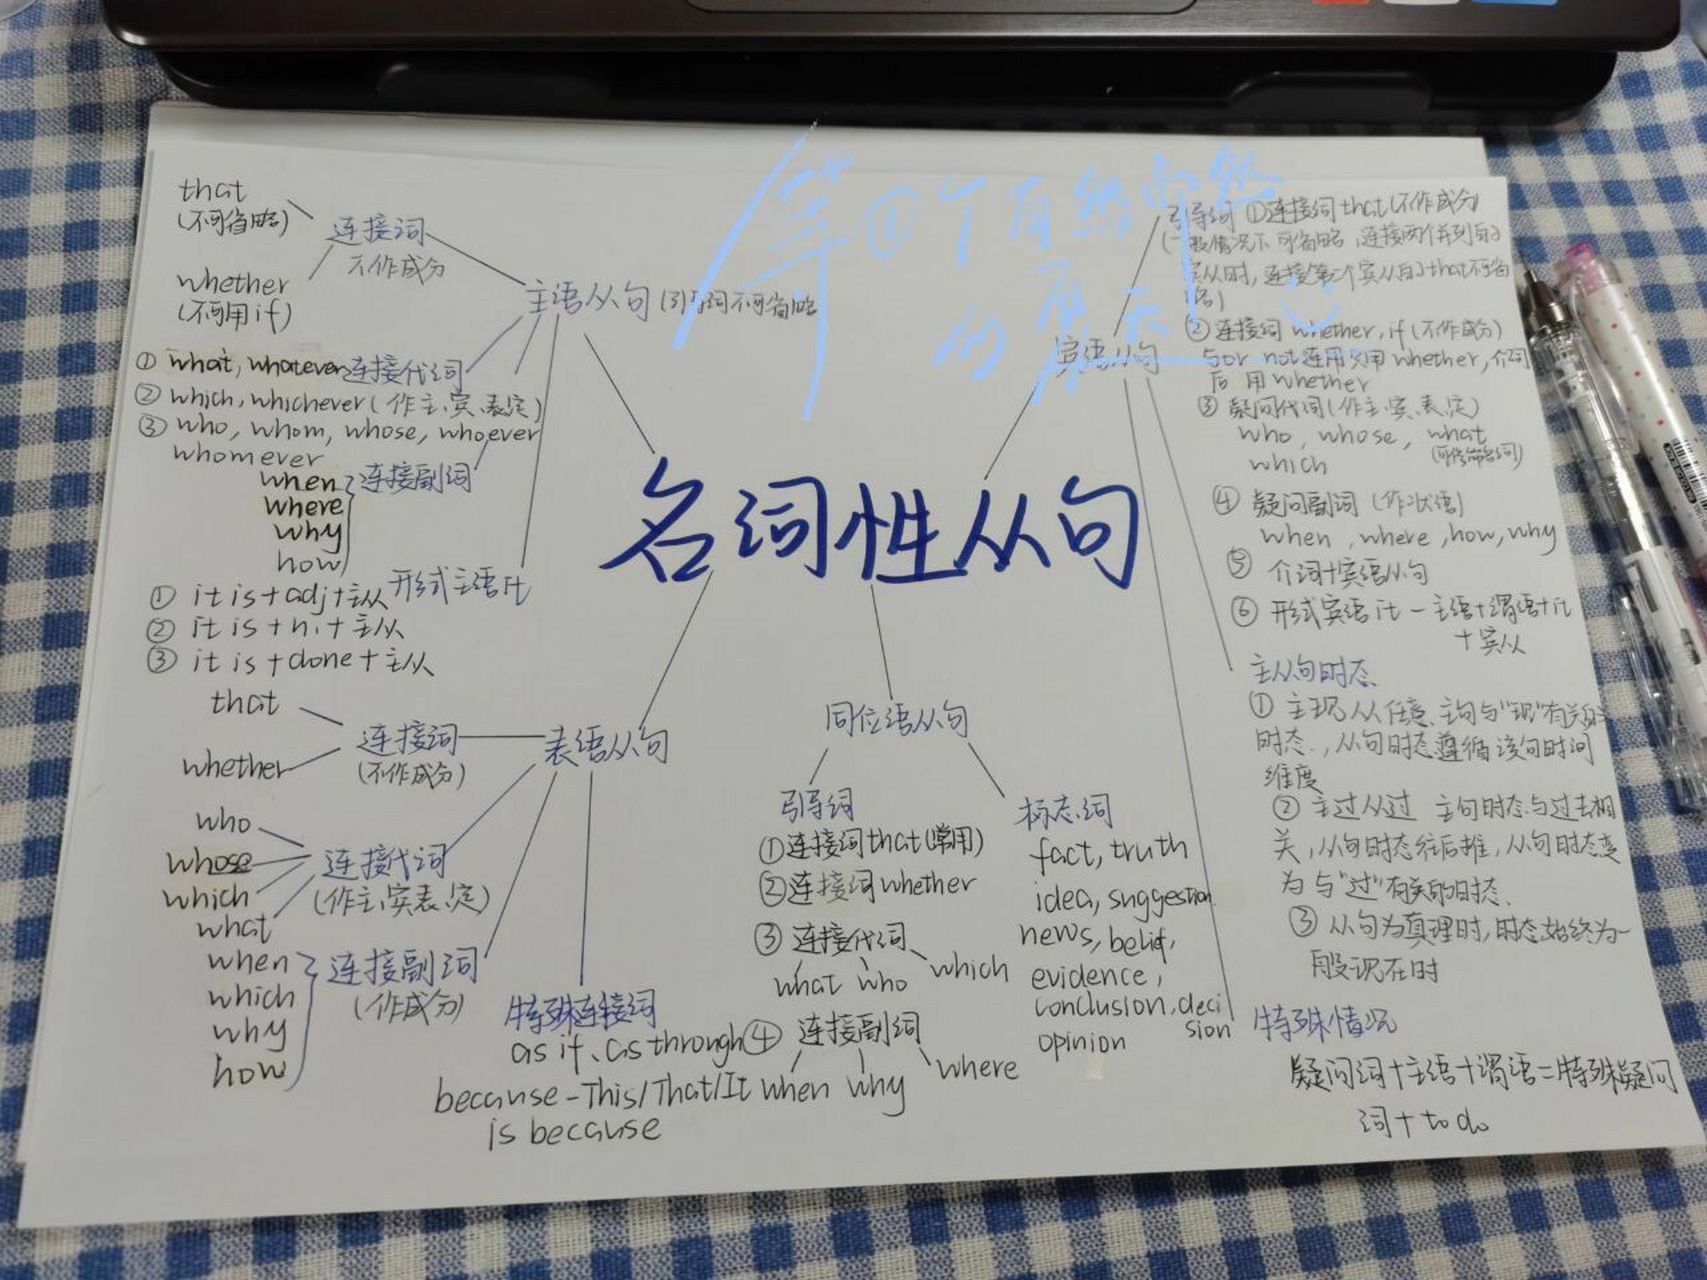 名词性从句
主语从句(引导词不可省略
连接词
不作成分
that
(不可省略)
whether
(不可用if)
连接代词
① what, whatever
② which, whichever(作主、宾、表定)
③ who, whom, whose, whoever
whomever
连接副词
when
where
why
how
形式主语it
① it is+adj+主从
② it is+n.+主从
③ it is+done+主从
表语从句
连接词
(不作成分)
that
whether
连接代词
(作主、宾表、定)
who
whose
which
what
连接副词
(作成分)
when
which
why
how
特殊连接词
as if、as through
because-This/That/It
is because
同位语从句
引导词
①连接词that(常用)
②连接词whether
③ 连接代词
what who which
④ 连接副词
when why where
标志词
fact, truth
idea, suggestion
news, belif,
evidence,
conclusion, deci
sion
opinion
宾语从句
引导词 ①连接词that(不作成分)
(一般情况下可省略,连接两个并列的
宾从时,连接第二个宾从的that不可省
略)
② 连接词 whether, if(不作成分)
与or not连用只用 whether,介词
后 用 whether
③ 疑问代词(作主、宾、表、定)
who, whose, what
which (可修饰名词)
④ 疑问副词 (作状语)
when, where, how, why
⑤ 介词+宾语从句
⑥ 形式宾语it — 主语+谓语+it
+宾从
主从句时态
① 主现从任意、主句与"现"有关的
时态.,从句时态遵循该句时间
维度
② 主过从过 主句时态与过去相
关,从句时态往后推,从句时态变
为 与"过"有关的时态.
③ 从句为真理时,时态始终为一
般现在时
特殊情况
疑问词+主语+谓语=特殊疑问
词+to do
第①个自然
的夏天